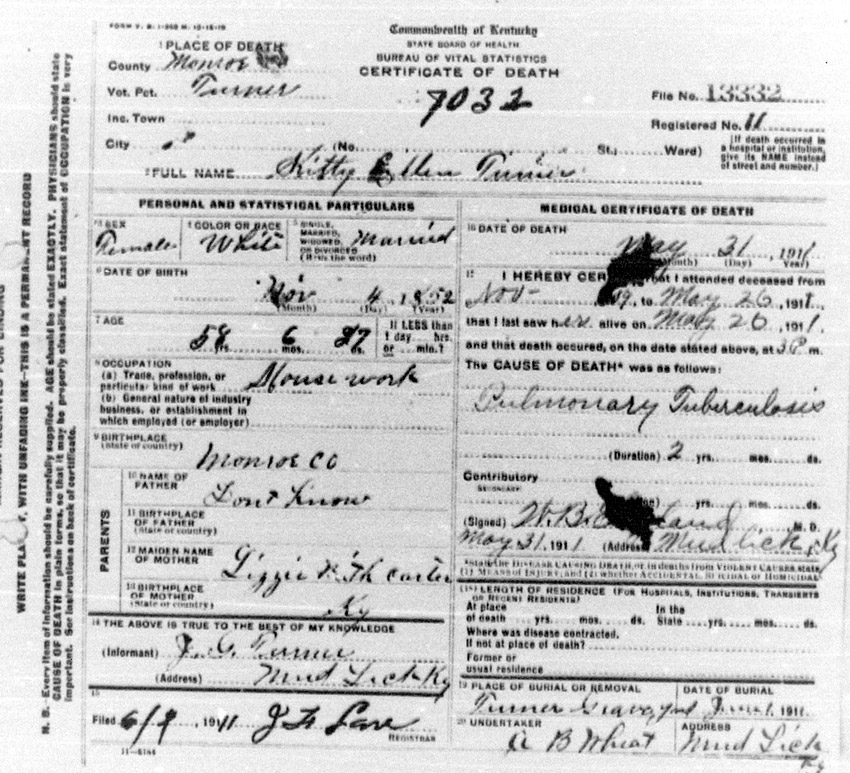 FORM V. S. 1-
Commonwealth of Kentucky
STATE BOARD OF HEALTH
BUREAU OF VITAL STATISTICS
CERTIFICATE OF DEATH
1 PLACE OF DEATH
County Monroe
Vot. Pct. Turner
7032
File No. 13332
Inc. Town
Registered No. 11
City (No. St.; Ward)
[If death occurred in a hospital or institution, give its NAME instead of street and number.]
2 FULL NAME Kitty Ellen Turner
PERSONAL AND STATISTICAL PARTICULARS
3 SEX Female
4 COLOR OR RACE White
5 SINGLE, MARRIED, WIDOWED, OR DIVORCED (Write the word) Married
6 DATE OF BIRTH
Nov 4 1852
(Month) (Day) (Year)
7 AGE
58 yrs. 6 mos. 27 ds.
If LESS than 1 day ... hrs. or ... min.?
8 OCCUPATION
(a) Trade, profession, or particular kind of work House work
(b) General nature of industry business, or establishment in which employed (or employer)
9 BIRTHPLACE
(State or country)
Monroe Co
PARENTS
10 NAME OF FATHER Dont Know
11 BIRTHPLACE OF FATHER (State or country)
12 MAIDEN NAME OF MOTHER Lizzie Carter
13 BIRTHPLACE OF MOTHER (State or country) Ky
14 THE ABOVE IS TRUE TO THE BEST OF MY KNOWLEDGE
(Informant) J. G. Turner
(Address) Mud Lick Ky
15
Filed 6/9 1911
REGISTRAR
MEDICAL CERTIFICATE OF DEATH
16 DATE OF DEATH
May 31, 1911
(Month) (Day) (Year)
17 I HEREBY that I attended deceased from
Nov to May 26, 1911,
that I last saw her alive on May 26, 1911,
and that death occured, on the date stated above, at 3 P m.
The CAUSE OF DEATH* was as follows:
Pulmonary Tuberculosis
(Duration) 2 yrs. mos. ds.
Contributory
SECONDARY
yrs. mos. ds.
(Signed) W. B. M. D.
May 31, 1911 (Address) Mud Lick Ky
*State the DISEASE CAUSING DEATH, or in deaths from VIOLENT CAUSES state
(1) MEANS OF INJURY; and (2) whether ACCIDENTAL, SUICIDAL or HOMICIDAL
18 LENGTH OF RESIDENCE (FOR HOSPITALS, INSTITUTIONS, TRANSIENTS
OR RECENT RESIDENTS)
At place In the
of death yrs. mos. ds. State yrs. mos. ds.
Where was disease contracted.
If not at place of death?
Former or
usual residence
19 PLACE OF BURIAL OR REMOVAL DATE OF BURIAL
Turner Graveyard June 1, 1911
20 UNDERTAKER ADDRESS
A B Wheat Mud Lick
Ky
WRITE WITH UNFADING INK—THIS IS A PERMANENT RECORD
N. B.—Every item of information should be carefully supplied. AGE should be stated EXACTLY. PHYSICIANS should state
CAUSE OF DEATH in plain forms, so that it may be properly classified. Exact statement of OCCUPATION is very
important. See instructions on back of certificate.